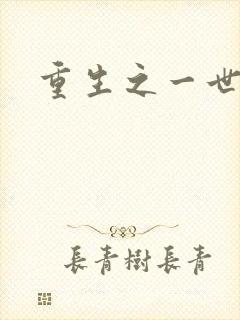 重生之一世
長青樹長青